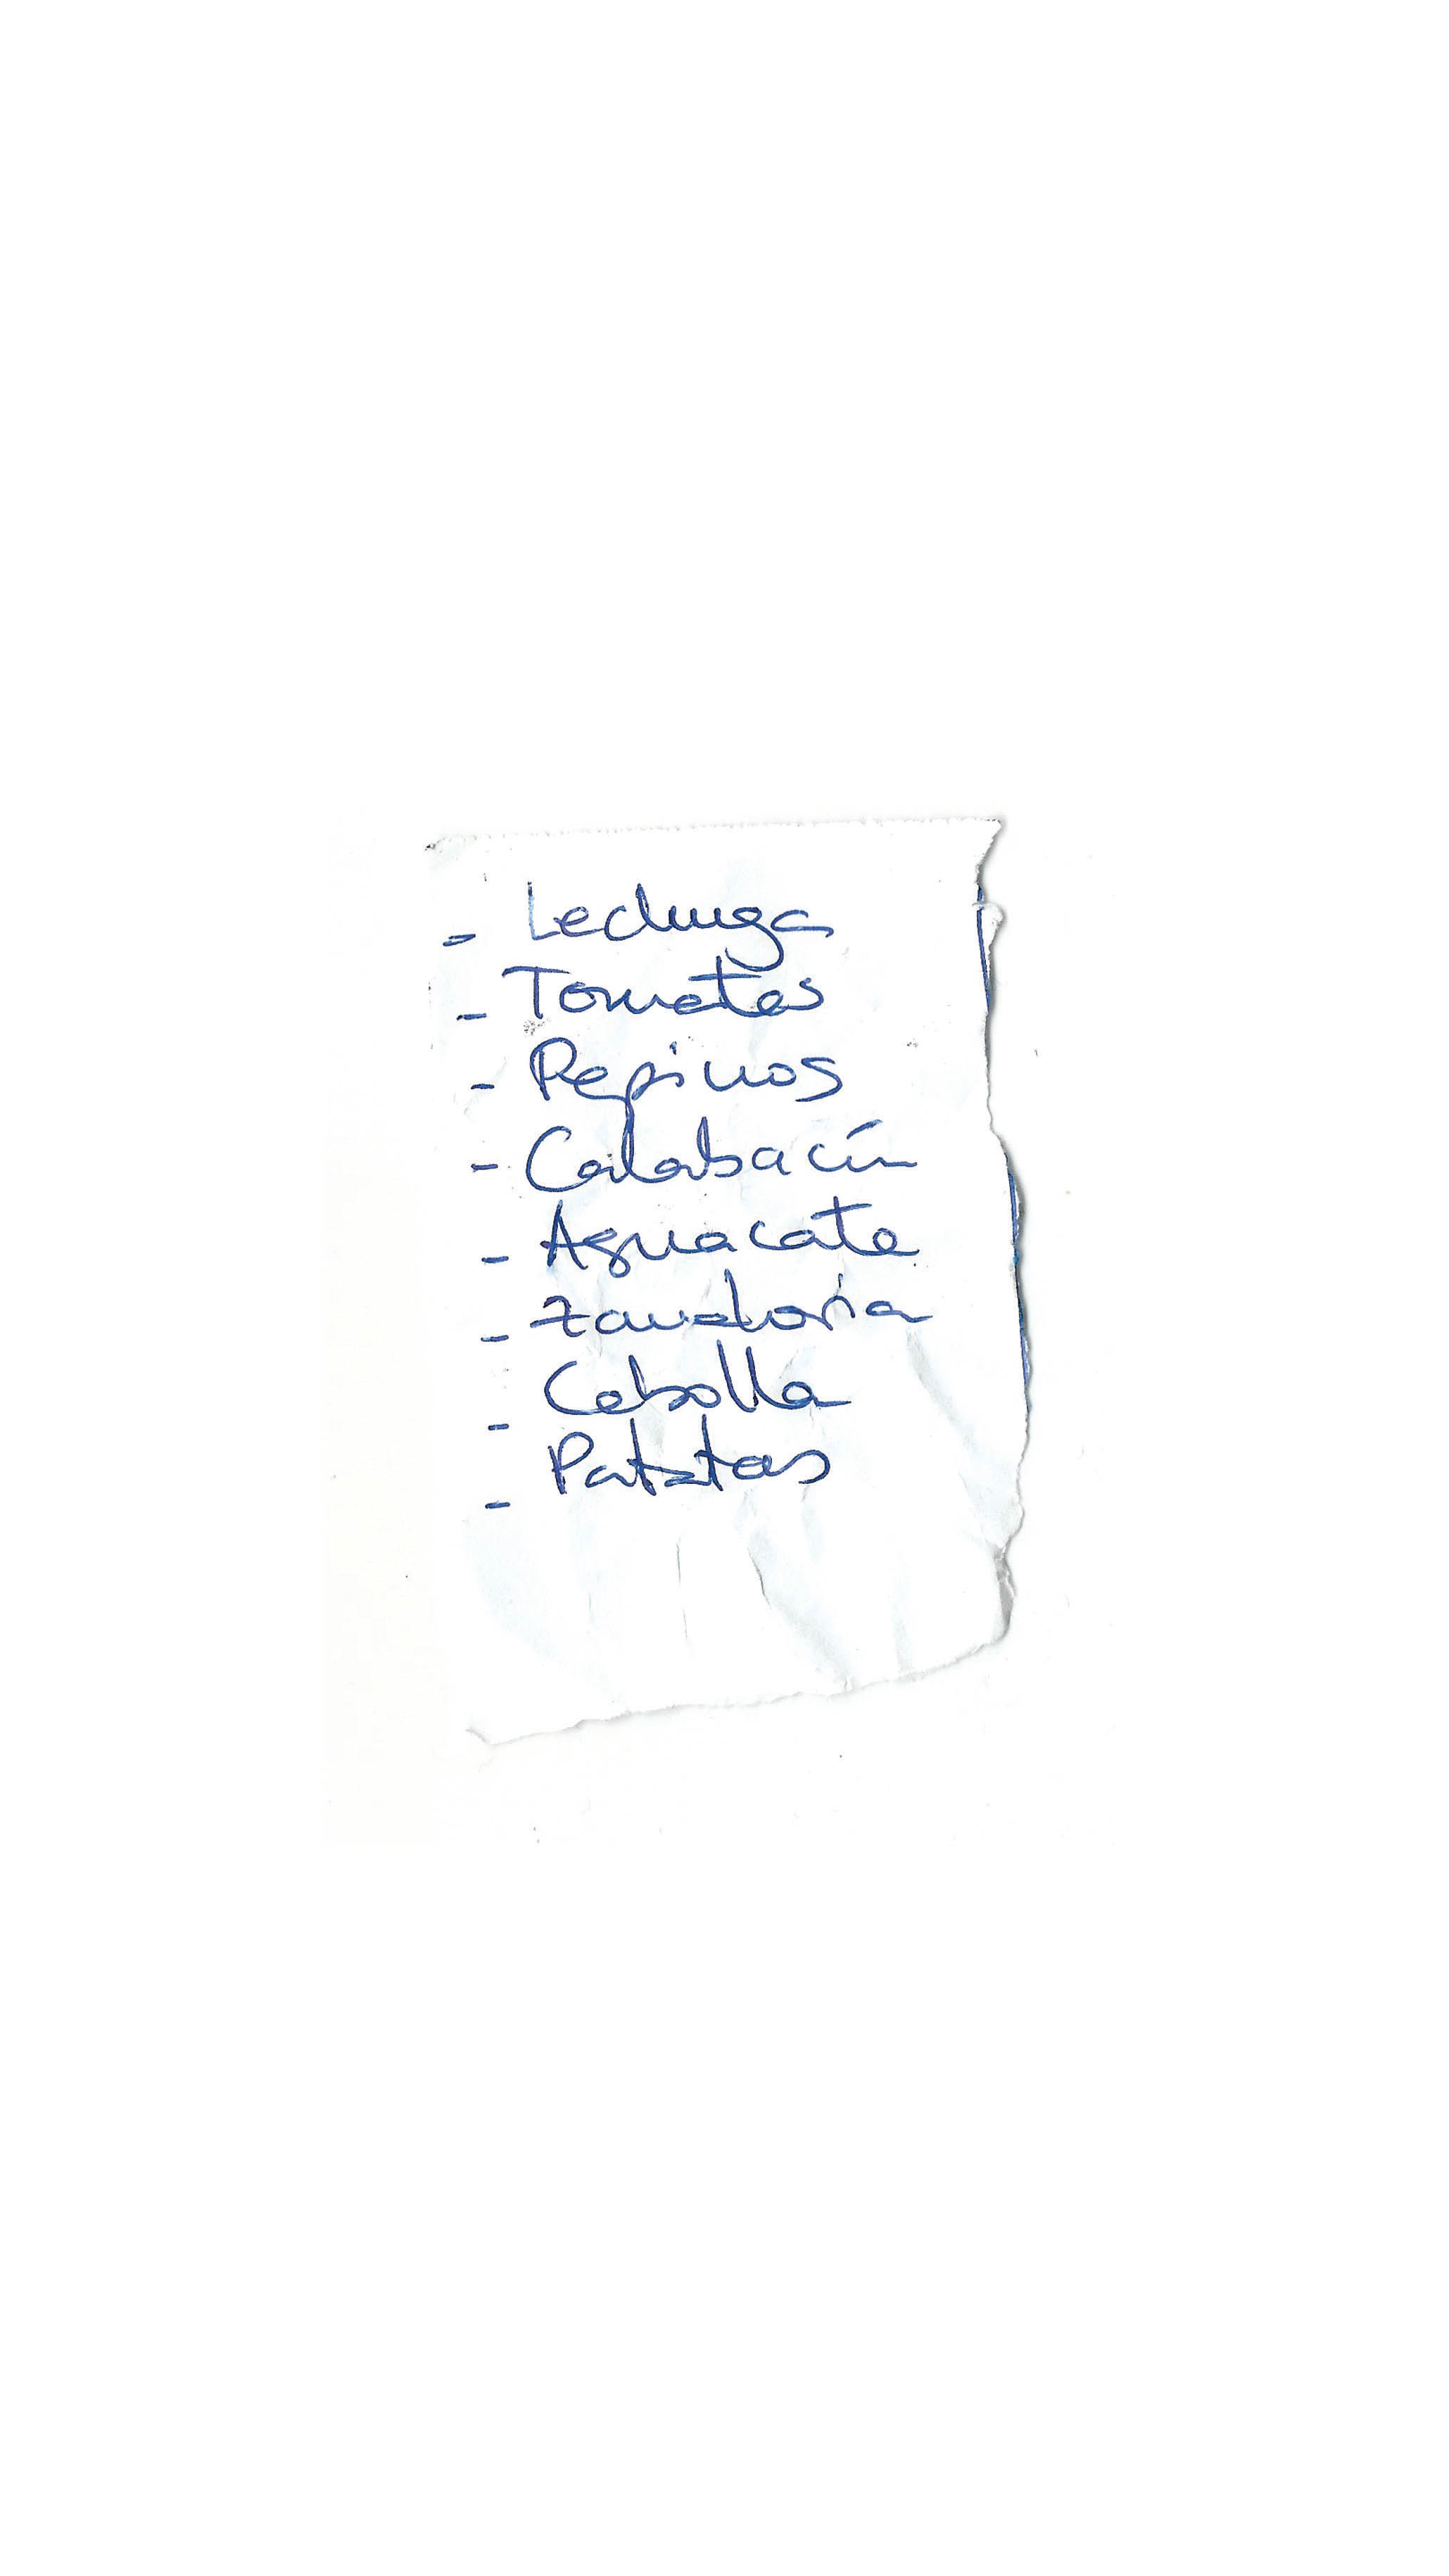 - Lechuga
- Tomates
- Pepinos
- Calabacín
- Aguacate
- Zanahoria
- Cebolla
- Patatas